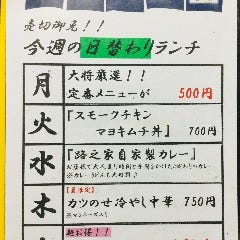 売切御免！！
今週の日替わりランチ
月 大将厳選！！
定番メニューが 500円
火 『スモークチキン
マヨキムチ丼』 700円
水 『路之家自家製カレー』
木 【量限定】
カツのせ冷やし中華 750円
超お得！！